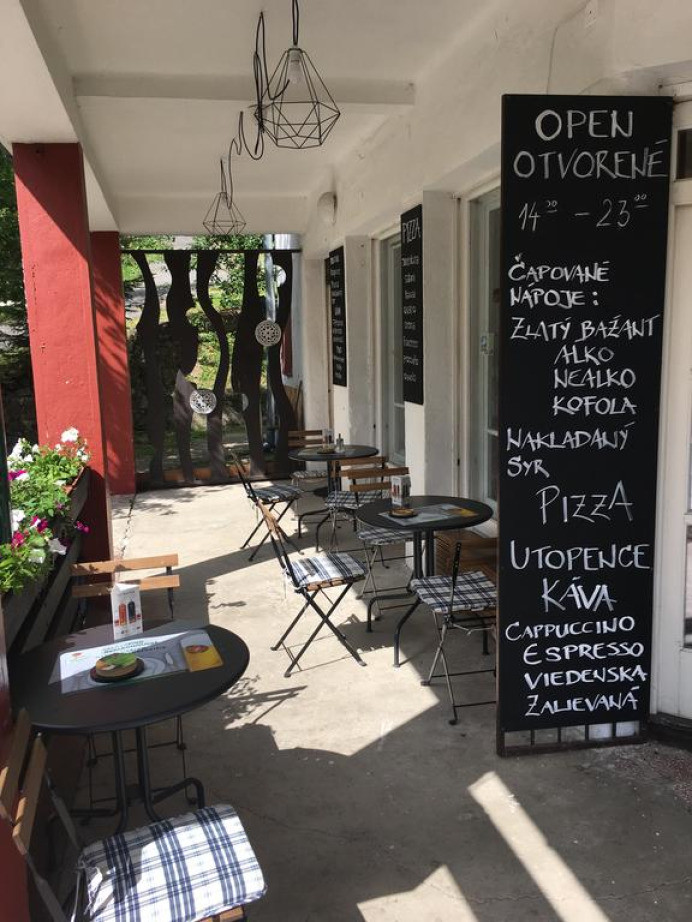 OPEN
OTVORENÉ
14⁰⁰ - 23⁰⁰
ČAPOVANÉ
NÁPOJE:
ZLATÝ BAŽANT
ALKO
NEALKO
KOFOLA
NAKLADANÝ
SYR
PIZZA
UTOPENCE
KÁVA
CAPPUCCINO
ESPRESSO
VIEDENSKÁ
ZALIEVANÁ
PIZZA